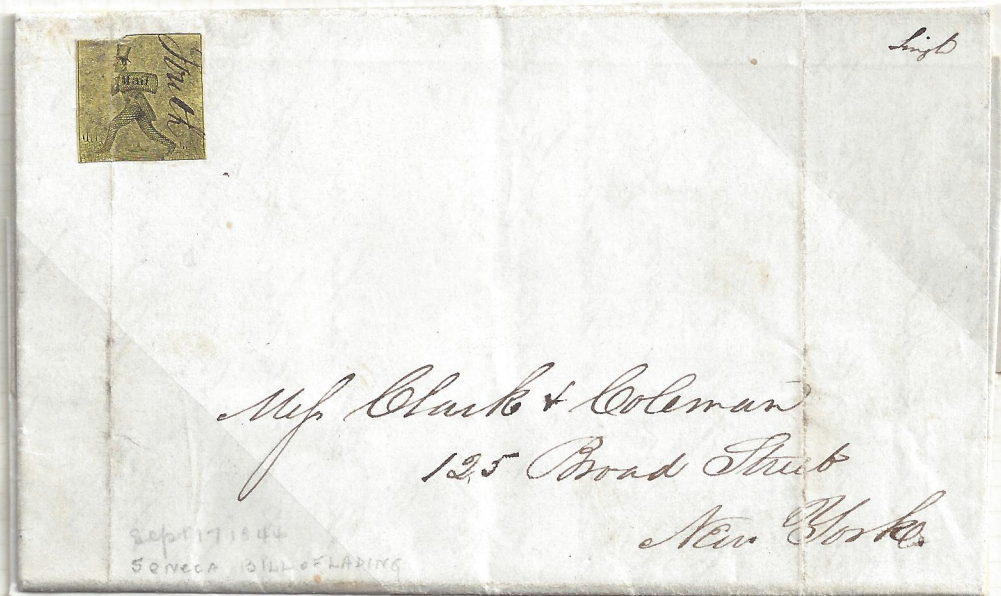 Singl
Mail
Messr Clark & Coleman
125 Broad Street
New York.
Sept 17 1844
SENECA BILL OF LADING